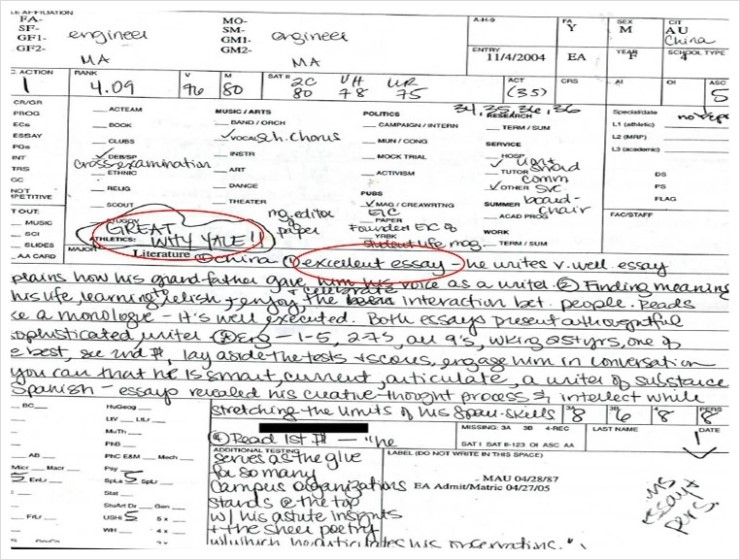 LE AFFILIATION
FA-
SF-
GF1- engineer
GF2-
MA
MO-
SM-
GM1- engineer
GM2-
MA
A-H-9
FA Y
SEX M
CIT AU China
ENTRY 11/4/2004
EA
YEAR F
SCHOOL TYPE 4
C. ACTION 1
RANK 4.09
V 76
M 80
SAT II
2C 80
UH 78
UR 75
ACT (35)
CRS
AI
OI
ASC 5
34, 35, 36, 36
CR/GR
PROG
ECs
ESSAY
PQs
INT
TRS
GC
NOT
PETITIVE
T OUT:
MUSIC
SCI
SLIDES
AA CARD
ACTEAM
BOOK
CLUBS
DEB/SP
cross examination
ETHNIC
RELIG
SCOUT
ATHLETICS:
GREAT
WHY YALE!!
MUSIC / ARTS
BAND / ORCH
VOCAL sch. chorus
INSTR
ART
DANCE
THEATER
POLITICS
CAMPAIGN / INTERN
MUN / CONG
MOCK TRIAL
ACTIVISM
PUBS
MAG / CREAWRTNG
EIC
PAPER
mg. editor of paper
Founded EIC of
YRBK
student life mag.
RESEARCH
TERM / SUM
SERVICE
HOSP
TUTOR
OTHER svc
comm
SUMMER board
chair
ACAD PROG
WORK
TERM / SUM
Special/date
L1 (athletic)
L2 (MRP)
L3 (academic)
DS
PS
FLAG
FAC/STAFF
MAJOR Literature
China ① excellent essay - he writes v. well. essay
plains how his grandfather give him his voice as a writer ② Finding meaning
his life, learning to relish + enjoy + celebrate the interaction bet. people. Reads
ce a monologue - it's well executed. Both essays present a thoughtful
ophisticated writer. Eng - 1-5, 275, all 9's, wking 25 yrs, one of
e best, see 2nd ¶, lay aside the tests + scores, engage him in conversation
you can that he is smart, current, articulate, a writer of substance
Spanish - essays revealed his creative thought process & intellect while
stretching the limits of his Span. skills
3 8
6
8
PERS 8
④ Read 1st ¶ - "he
serves as the glue
for so many
campus organizations
stands @ the top
w/ his astute insights
+ the sheer poetry
w/ which he articulates his observations."
BC
HuGeog
LIT
LiLr
MuTh
PhB
AB
PhC E&M
Mech
Micr
Macr
Psy 5
5 EnLr
SpLa 5
SpLr
Stat
StuArt Dr
Gen
FrLr
USHi 5
WH
ADDITIONAL TESTING
MISSING: 3A 3B 4-REC
SAT1 SAT II-123 OI ASC AA
LAST NAME
DATE
LABEL (DO NOT WRITE IN THIS SPACE)
MAU 04/28/87
EA Admit/Matric 04/27/05
essays +
pers.